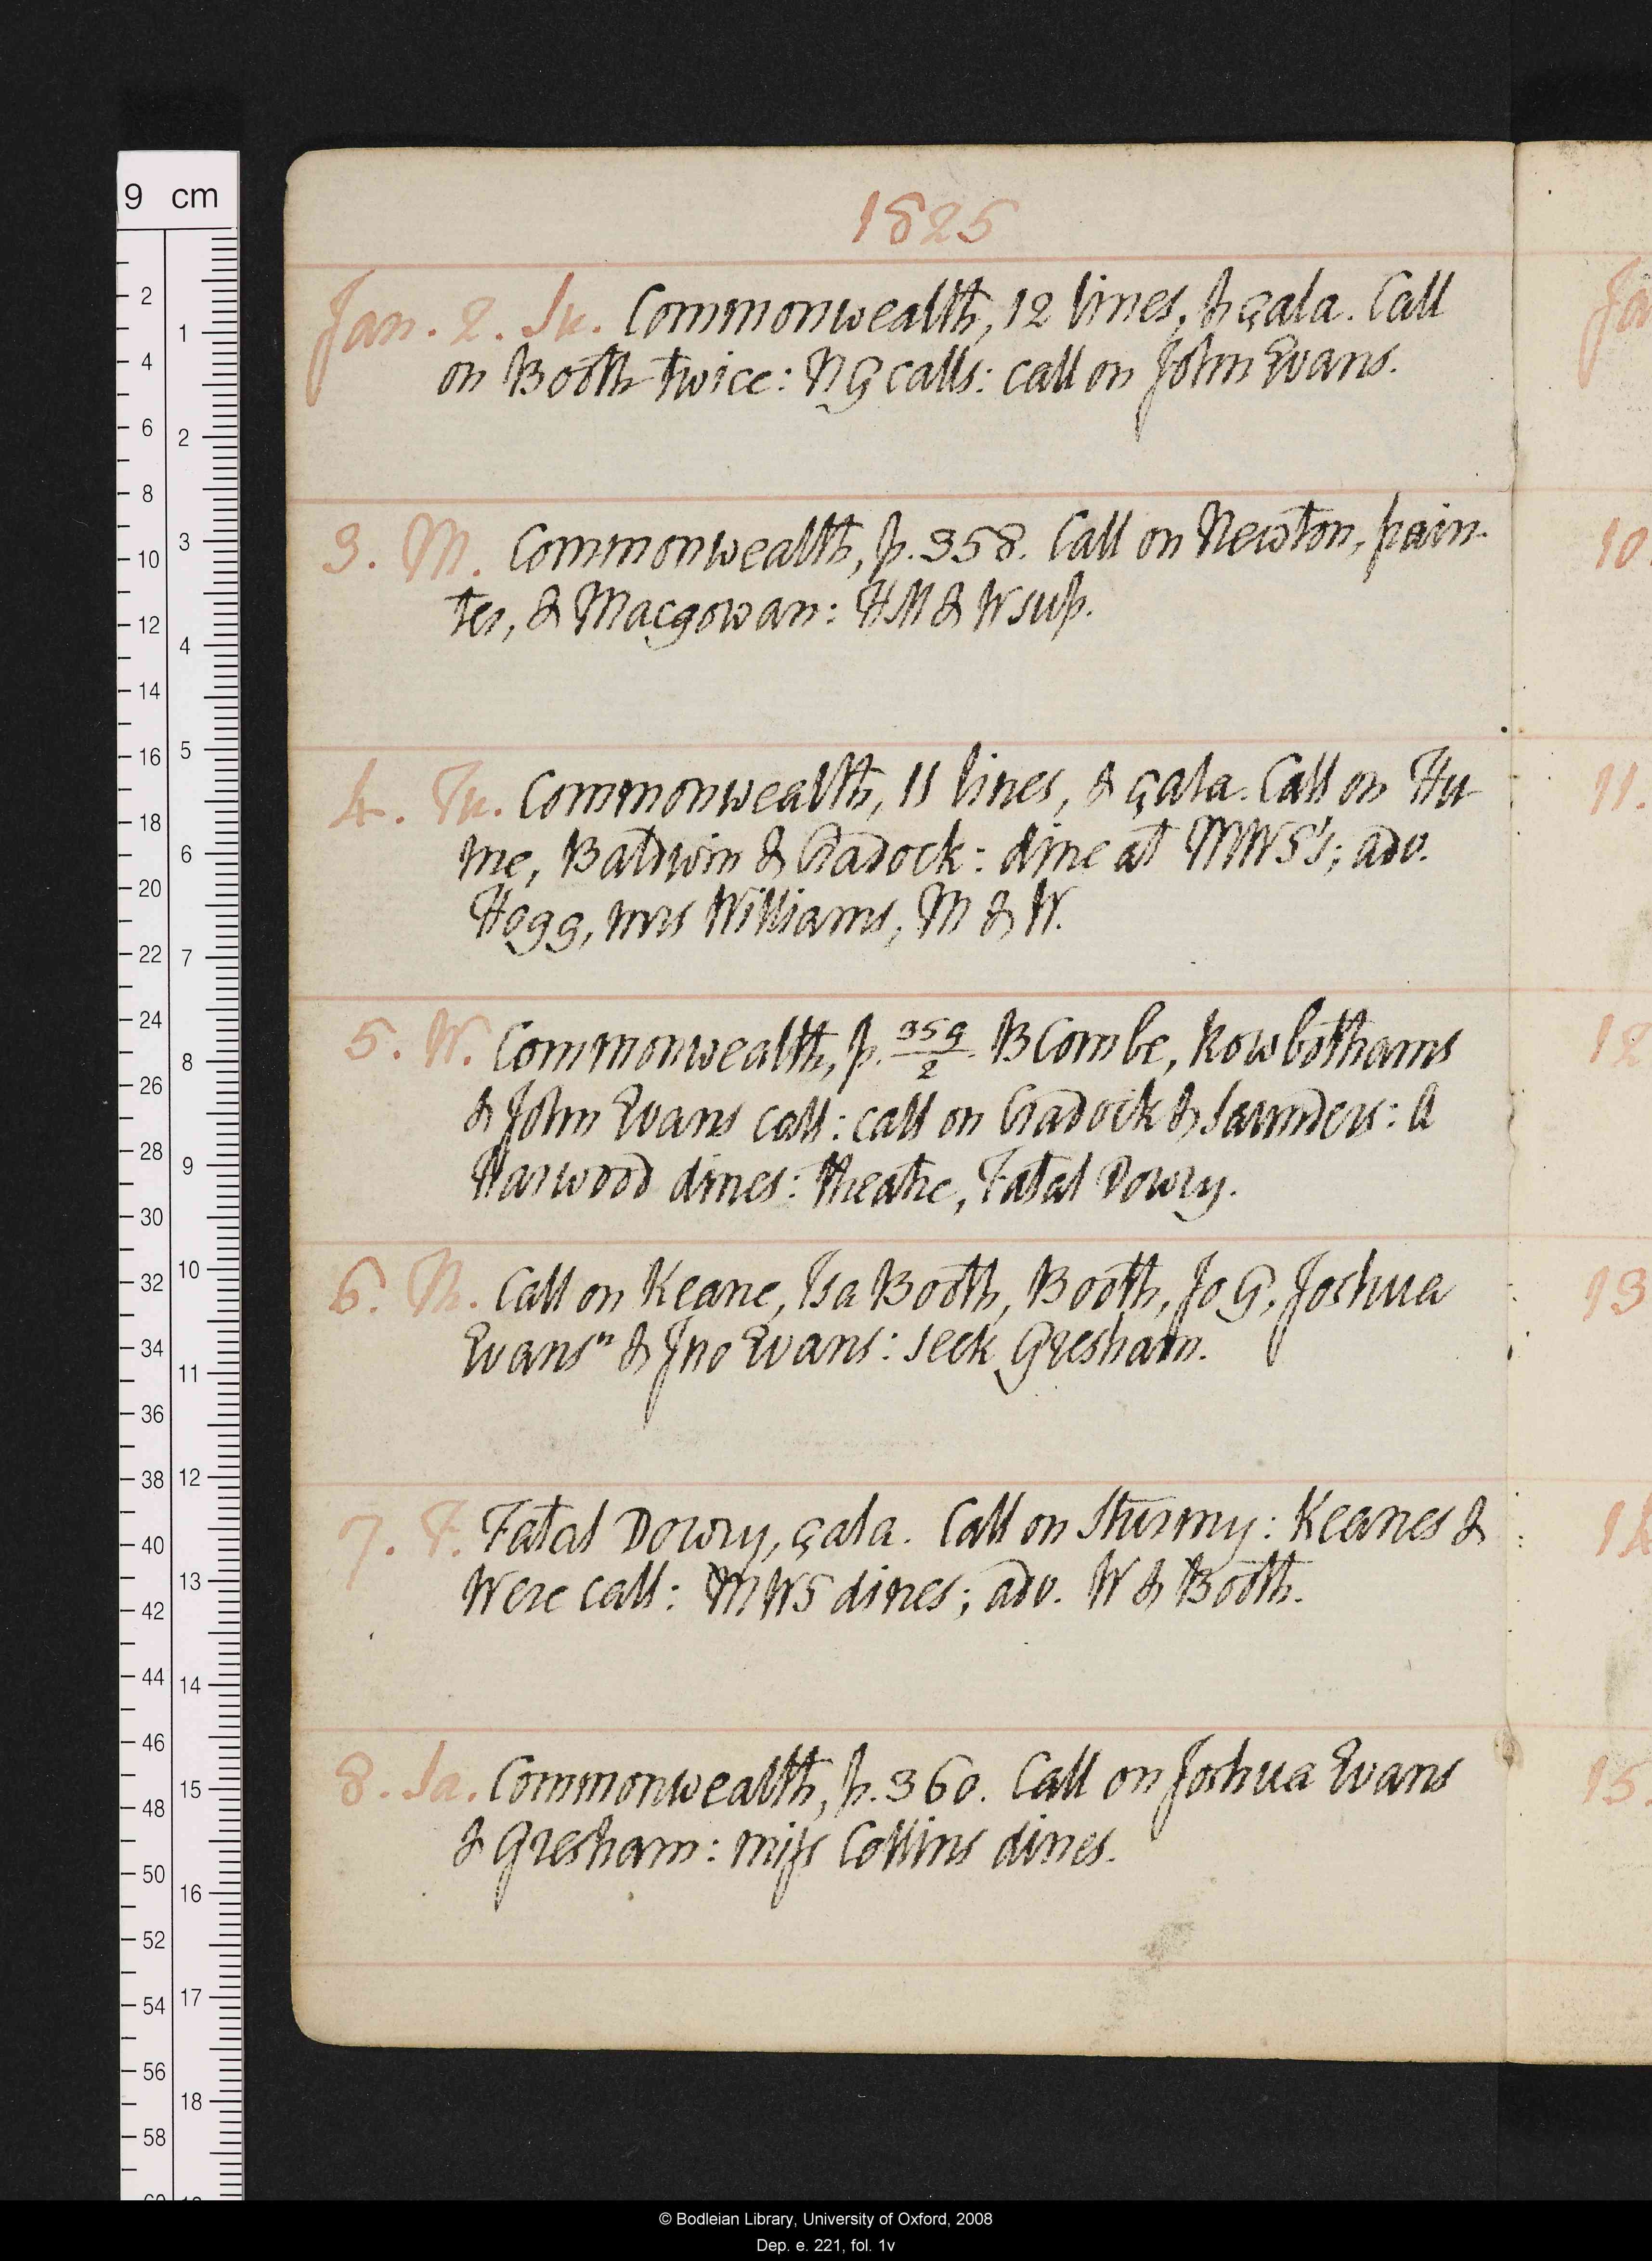 9 cm
1825
Jan. 2. Su. Commonwealth, 12 lines, & çala. Call
on Booth twice: N G calls: call on John Evans.
3. M. Commonwealth, p. 358. Call on Newton, pain-
ter, & Macgowan: HM & W sup.
4. Tu. Commonwealth, 11 lines, & çala. Call on Hu-
me, Baldwin & Cradock: dine at MWS's; adv.
Hogg, mrs Williams, M & W.
5. W. Commonwealth, p. 359/2. B Combe, Rowbothams
& John Evans call: call on Cradock & Saunders: A
Harwood dines: theatre, Fatal Dowry.
6. Th. Call on Keane, Isa Booth, Booth, Jo G, Joshua
Evansⁿ & Jno Evans: seek Gresham.
7. F. Fatal Dowry, çala. Call on Sturmy: Keanes &
Were call: MWS dines; adv. W & Booth.
8. Sa. Commonwealth, p. 360. Call on Joshua Evans
& Gresham: miss Collins dines.
Ja
10.
11.
12
13
14
15.
2
4
6
8
10
12
14
16
18
20
22
24
26
28
30
32
34
36
38
40
42
44
46
48
50
52
54
56
58
1
2
3
4
5
6
7
8
9
10
11
12
13
14
15
16
17
18
© Bodleian Library, University of Oxford, 2008
Dep. e. 221, fol. 1v